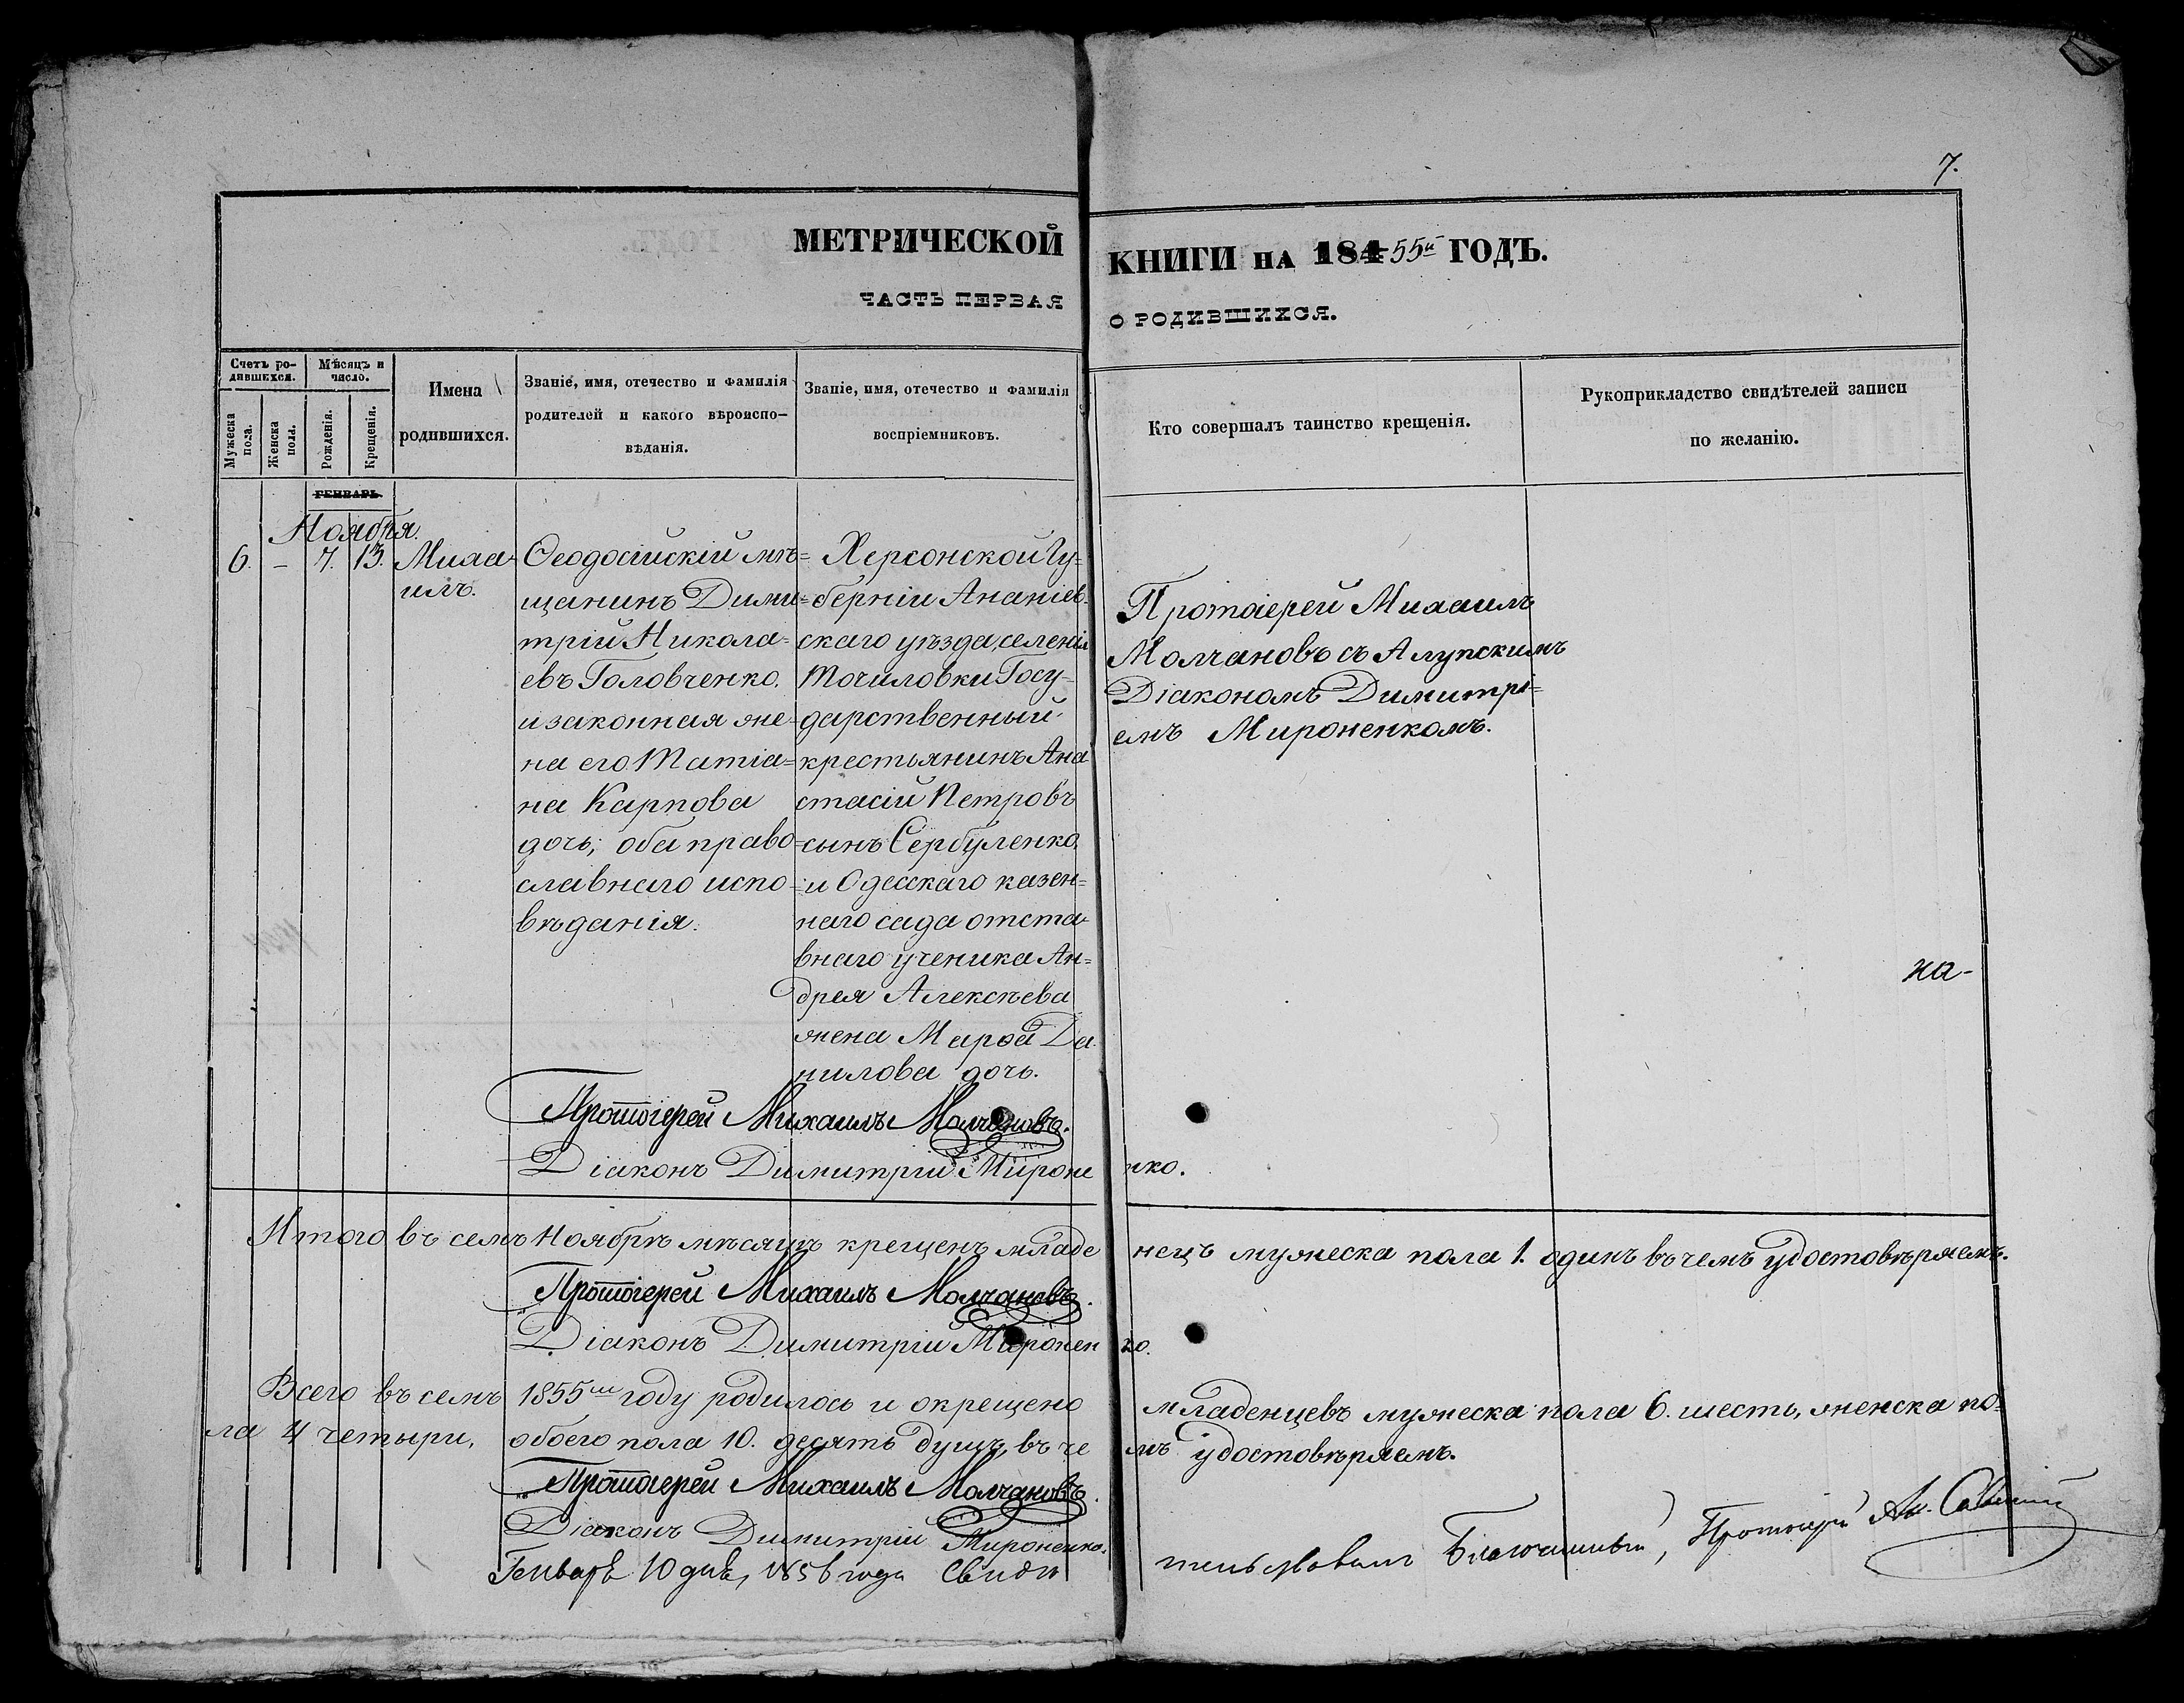 7.
МЕТРИЧЕСКОЙ КНИГИ НА 184 55й ГОДЪ.
ЧАСТЬ ПЕРВАЯ О РОДИВШИХСЯ.
Счетъ ро-
дившихся.
Мужеска пола.
Женска пола.
Мѣсяцъ и
число.
Рожденія.
Крещенія.
Имена
родившихся.
Званіе, имя, отечество и фамилія
родителей и какого вѣроиспо-
вѣданія.
Званіе, имя, отечество и фамилія
воспріемниковъ.
Кто совершалъ таинство крещенія.
Рукоприкладство свидѣтелей записи
по желанію.
ГЕНВАРЬ
Ноября.
6. – 7. 13.
Михаи-
илъ.
Ѳеодосійскій мѣ=
щанинъ Дими=
трій Никола=
евъ Головченко.
и законная же=
на его Татіа=
на Карпова
дочь; оба право=
славнаго испо=
вѣданія.
Херсонской Гу=
берніи Ананіев-
скаго уѣзда, селенія
Точиловки Госу-
дарственный
крестьянинъ Ана
стасій Петровъ
сынъ Сербуленко,
и Одесскаго казен=
наго сада отста-
внаго ученика Ан=
дрея Алексѣева
жена Марѳа Да-
нилова дочь.
Протоіерей Михаилъ
Молчановъ съ Алупскимъ
Діакономъ Димитрі=
емъ Мироненкомъ.
на-
Протоіерей Михаилъ Молчановъ.
Діаконъ Димитрій Мироненко.
Итого въ семъ Ноябрѣ мѣсяцѣ крещенъ младенецъ мужеска пола 1. одинъ въ чемъ удостовѣряемъ.
Протоіерей Михаилъ Молчановъ.
Діаконъ Димитрій Мироненко.
Всего въ семъ 1855мъ году родилось и окрещено младенцевъ мужеска пола 6. шесть, женска по=
ла 4 четыри, обоего пола 10. десять душъ, въ чемъ удостовѣряемъ.
Протоіерей Михаилъ Молчановъ.
Діаконъ Димитрій Мироненко.
Генваря 10 дня, 1856 года Свидѣтельствовалъ Благочинный, Протоіерей